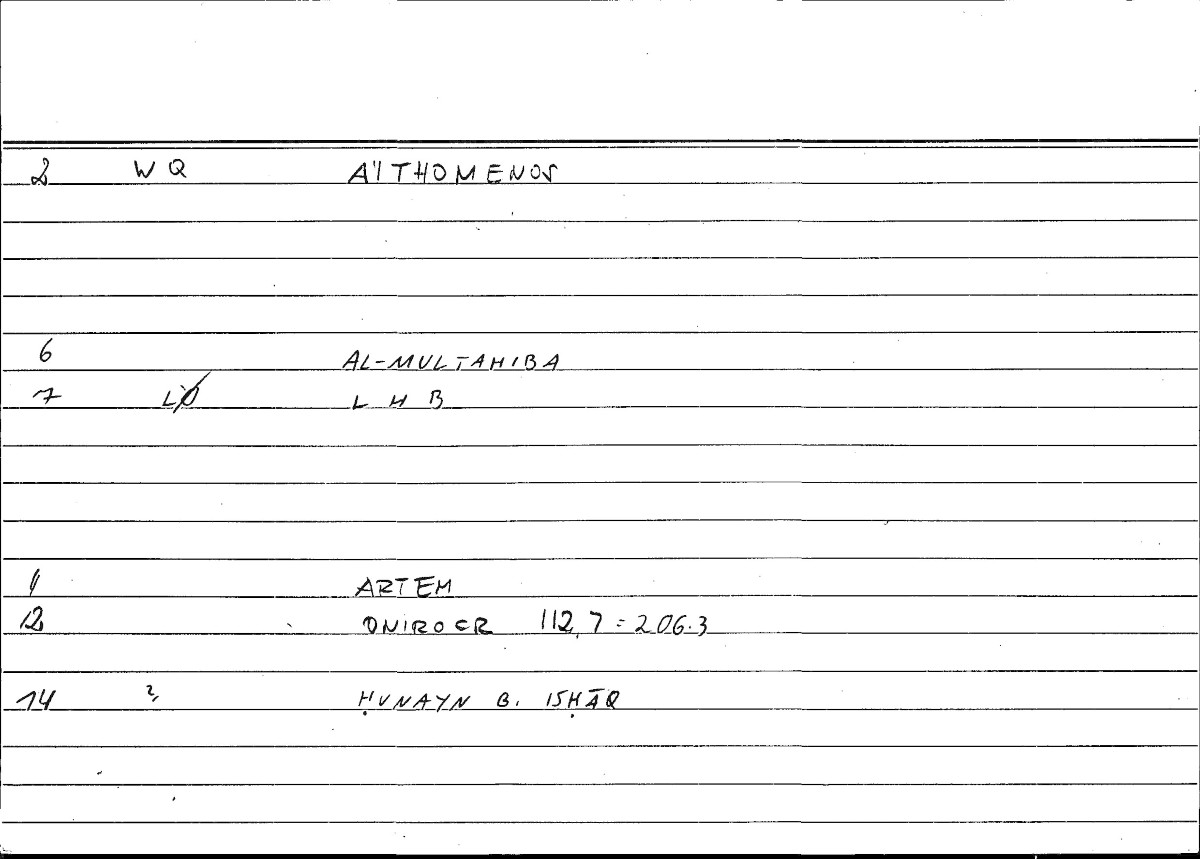 2 WQ AI'THOMENOS
6 AL-MULTAHIBA
7 LHB
11 ARTEM
12 ONIROCR 112,7=206.3
14 2, ḤUNAYN B. ISḤĀQ